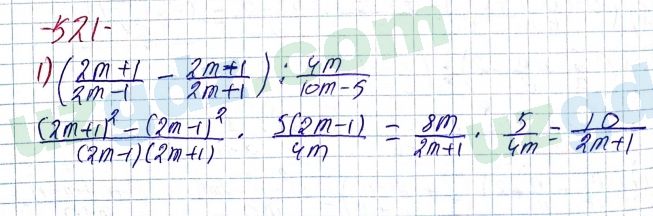 -521-
1) ((2m+1)/(2m-1) - (2m-1)/(2m+1)) : 4m/(10m-5)
((2m+1)² - (2m-1)²)/((2m-1)(2m+1)) · 5(2m-1)/4m = 8m/(2m+1) · 5/4m = 10/(2m+1)